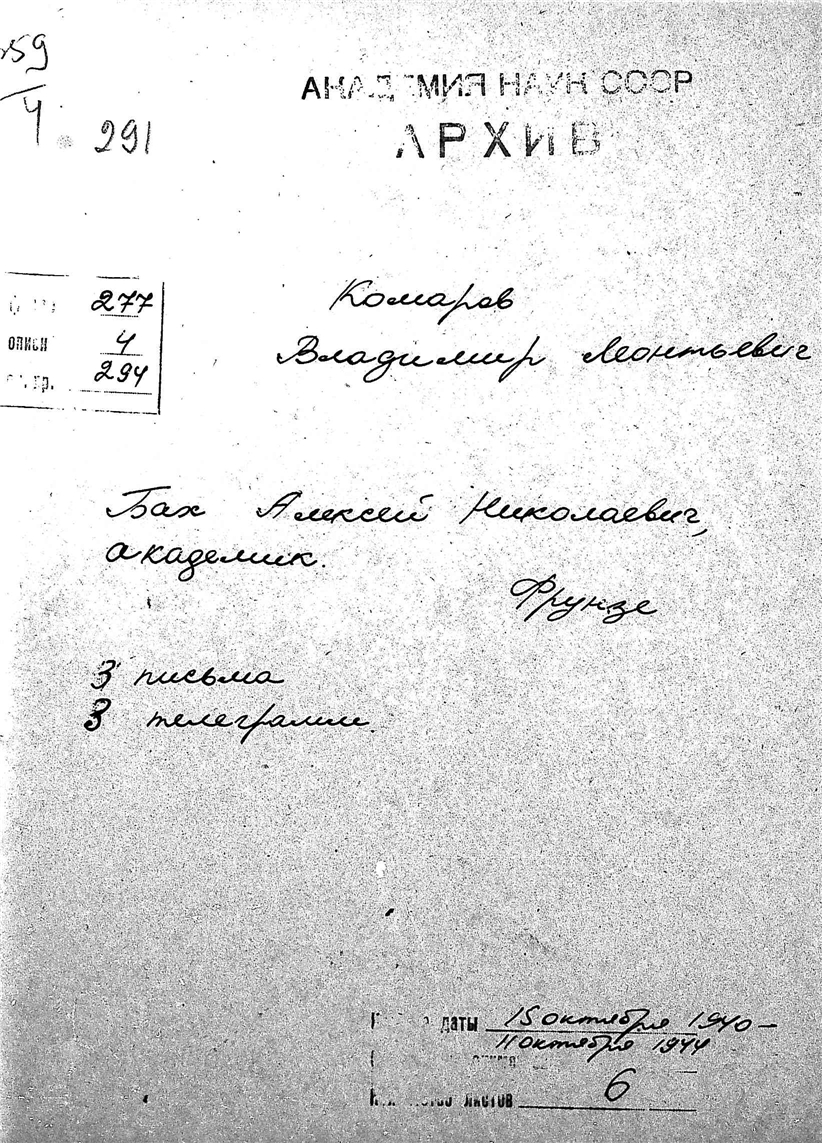 59
4
291
АКАДЕМИЯ НАУК СССР
АРХИВ
277
описи 4
294
Комаров
Владимир Леонтьевич
Бах Алексей Николаевич,
академик.
Фрунзе
3 письма
3 телеграмм.
даты 15 октября 1940 –
11 октября 1944
листов 6